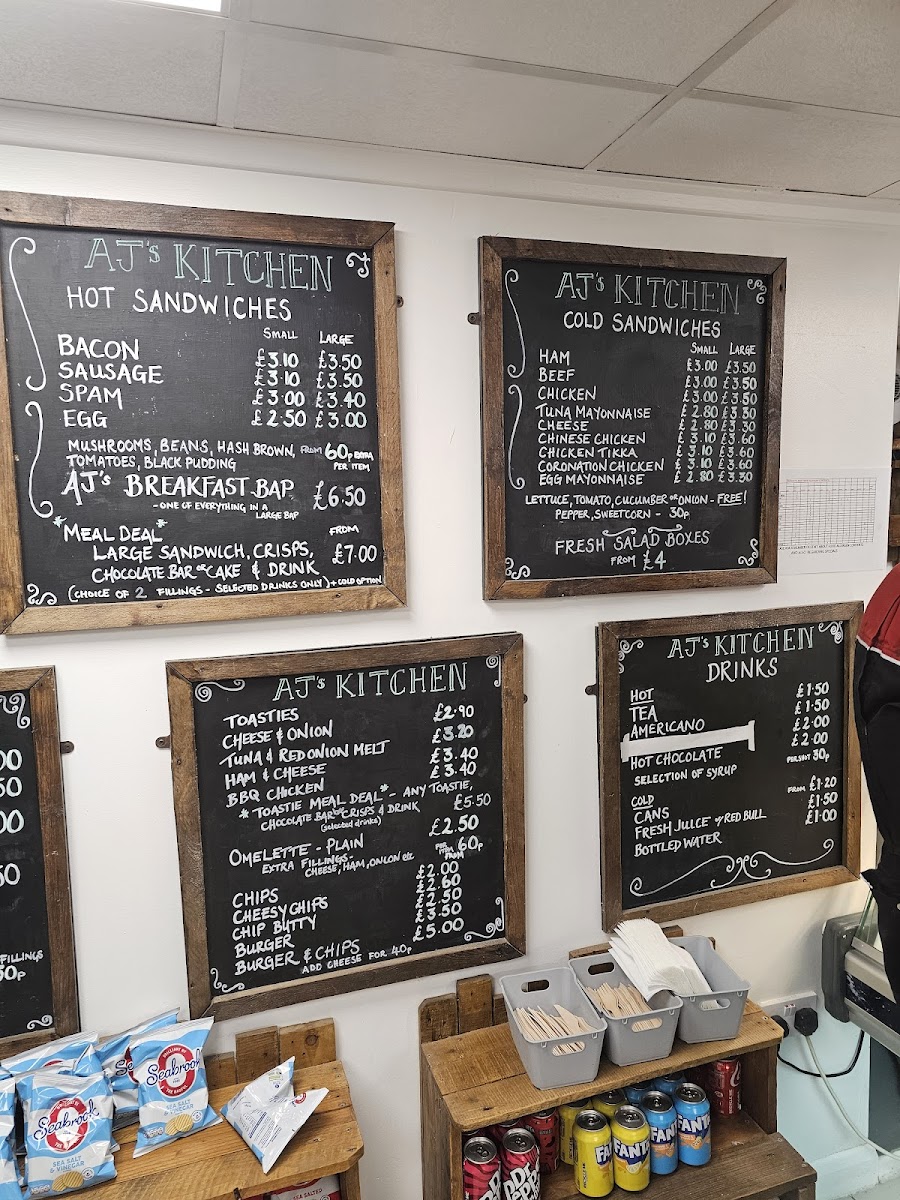 AJ's KITCHEN
HOT SANDWICHES
SMALL LARGE
BACON £3.10 £3.50
SAUSAGE £3.10 £3.50
SPAM £3.00 £3.40
EGG £2.50 £3.00
MUSHROOMS, BEANS, HASH BROWN, FROM 60p EXTRA
TOMATOES, BLACK PUDDING PER ITEM
AJ's BREAKFAST BAP £6.50
- ONE OF EVERYTHING IN A
LARGE BAP
*MEAL DEAL* FROM
LARGE SANDWICH, CRISPS, £7.00
CHOCOLATE BAR or CAKE & DRINK
(CHOICE OF 2 FILLINGS - SELECTED DRINKS ONLY) + COLD OPTION
AJ's KITCHEN
COLD SANDWICHES
SMALL LARGE
HAM £3.00 £3.50
BEEF £3.00 £3.50
CHICKEN £3.00 £3.50
TUNA MAYONNAISE £2.80 £3.30
CHEESE £2.80 £3.30
CHINESE CHICKEN £3.10 £3.60
CHICKEN TIKKA £3.10 £3.60
CORONATION CHICKEN £3.10 £3.60
EGG MAYONNAISE £2.80 £3.30
LETTUCE, TOMATO, CUCUMBER or ONION - FREE!
PEPPER, SWEETCORN - 30p
FRESH SALAD BOXES
FROM £4
AJ's KITCHEN
TOASTIES
CHEESE & ONION £2.90
TUNA & RED ONION MELT £3.20
HAM & CHEESE £3.40
BBQ CHICKEN £3.40
*TOASTIE MEAL DEAL* - ANY TOASTIE,
CHOCOLATE BAR or CRISPS & DRINK £5.50
(selected drinks)
OMELETTE - PLAIN £2.50
EXTRA FILLINGS - PER ITEM FROM 60p
CHEESE, HAM, ONION etc
CHIPS £2.00
CHEESY CHIPS £2.60
CHIP BUTTY £2.50
BURGER £3.50
BURGER & CHIPS £5.00
ADD CHEESE FOR 40p
AJ's KITCHEN
DRINKS
HOT
TEA £1.50
AMERICANO £1.50
£2.00
HOT CHOCOLATE £2.00
SELECTION OF SYRUP PER SHOT 30p
COLD
CANS FROM £1.20
FRESH JUICE or RED BULL £1.50
BOTTLED WATER £1.00
00
50
00
50
FILLINGS
50p
Seabrook
SEA SALT
& VINEGAR
Seabrook
SEA SALT
& VINEGAR
FANTA
FANTA
FANTA